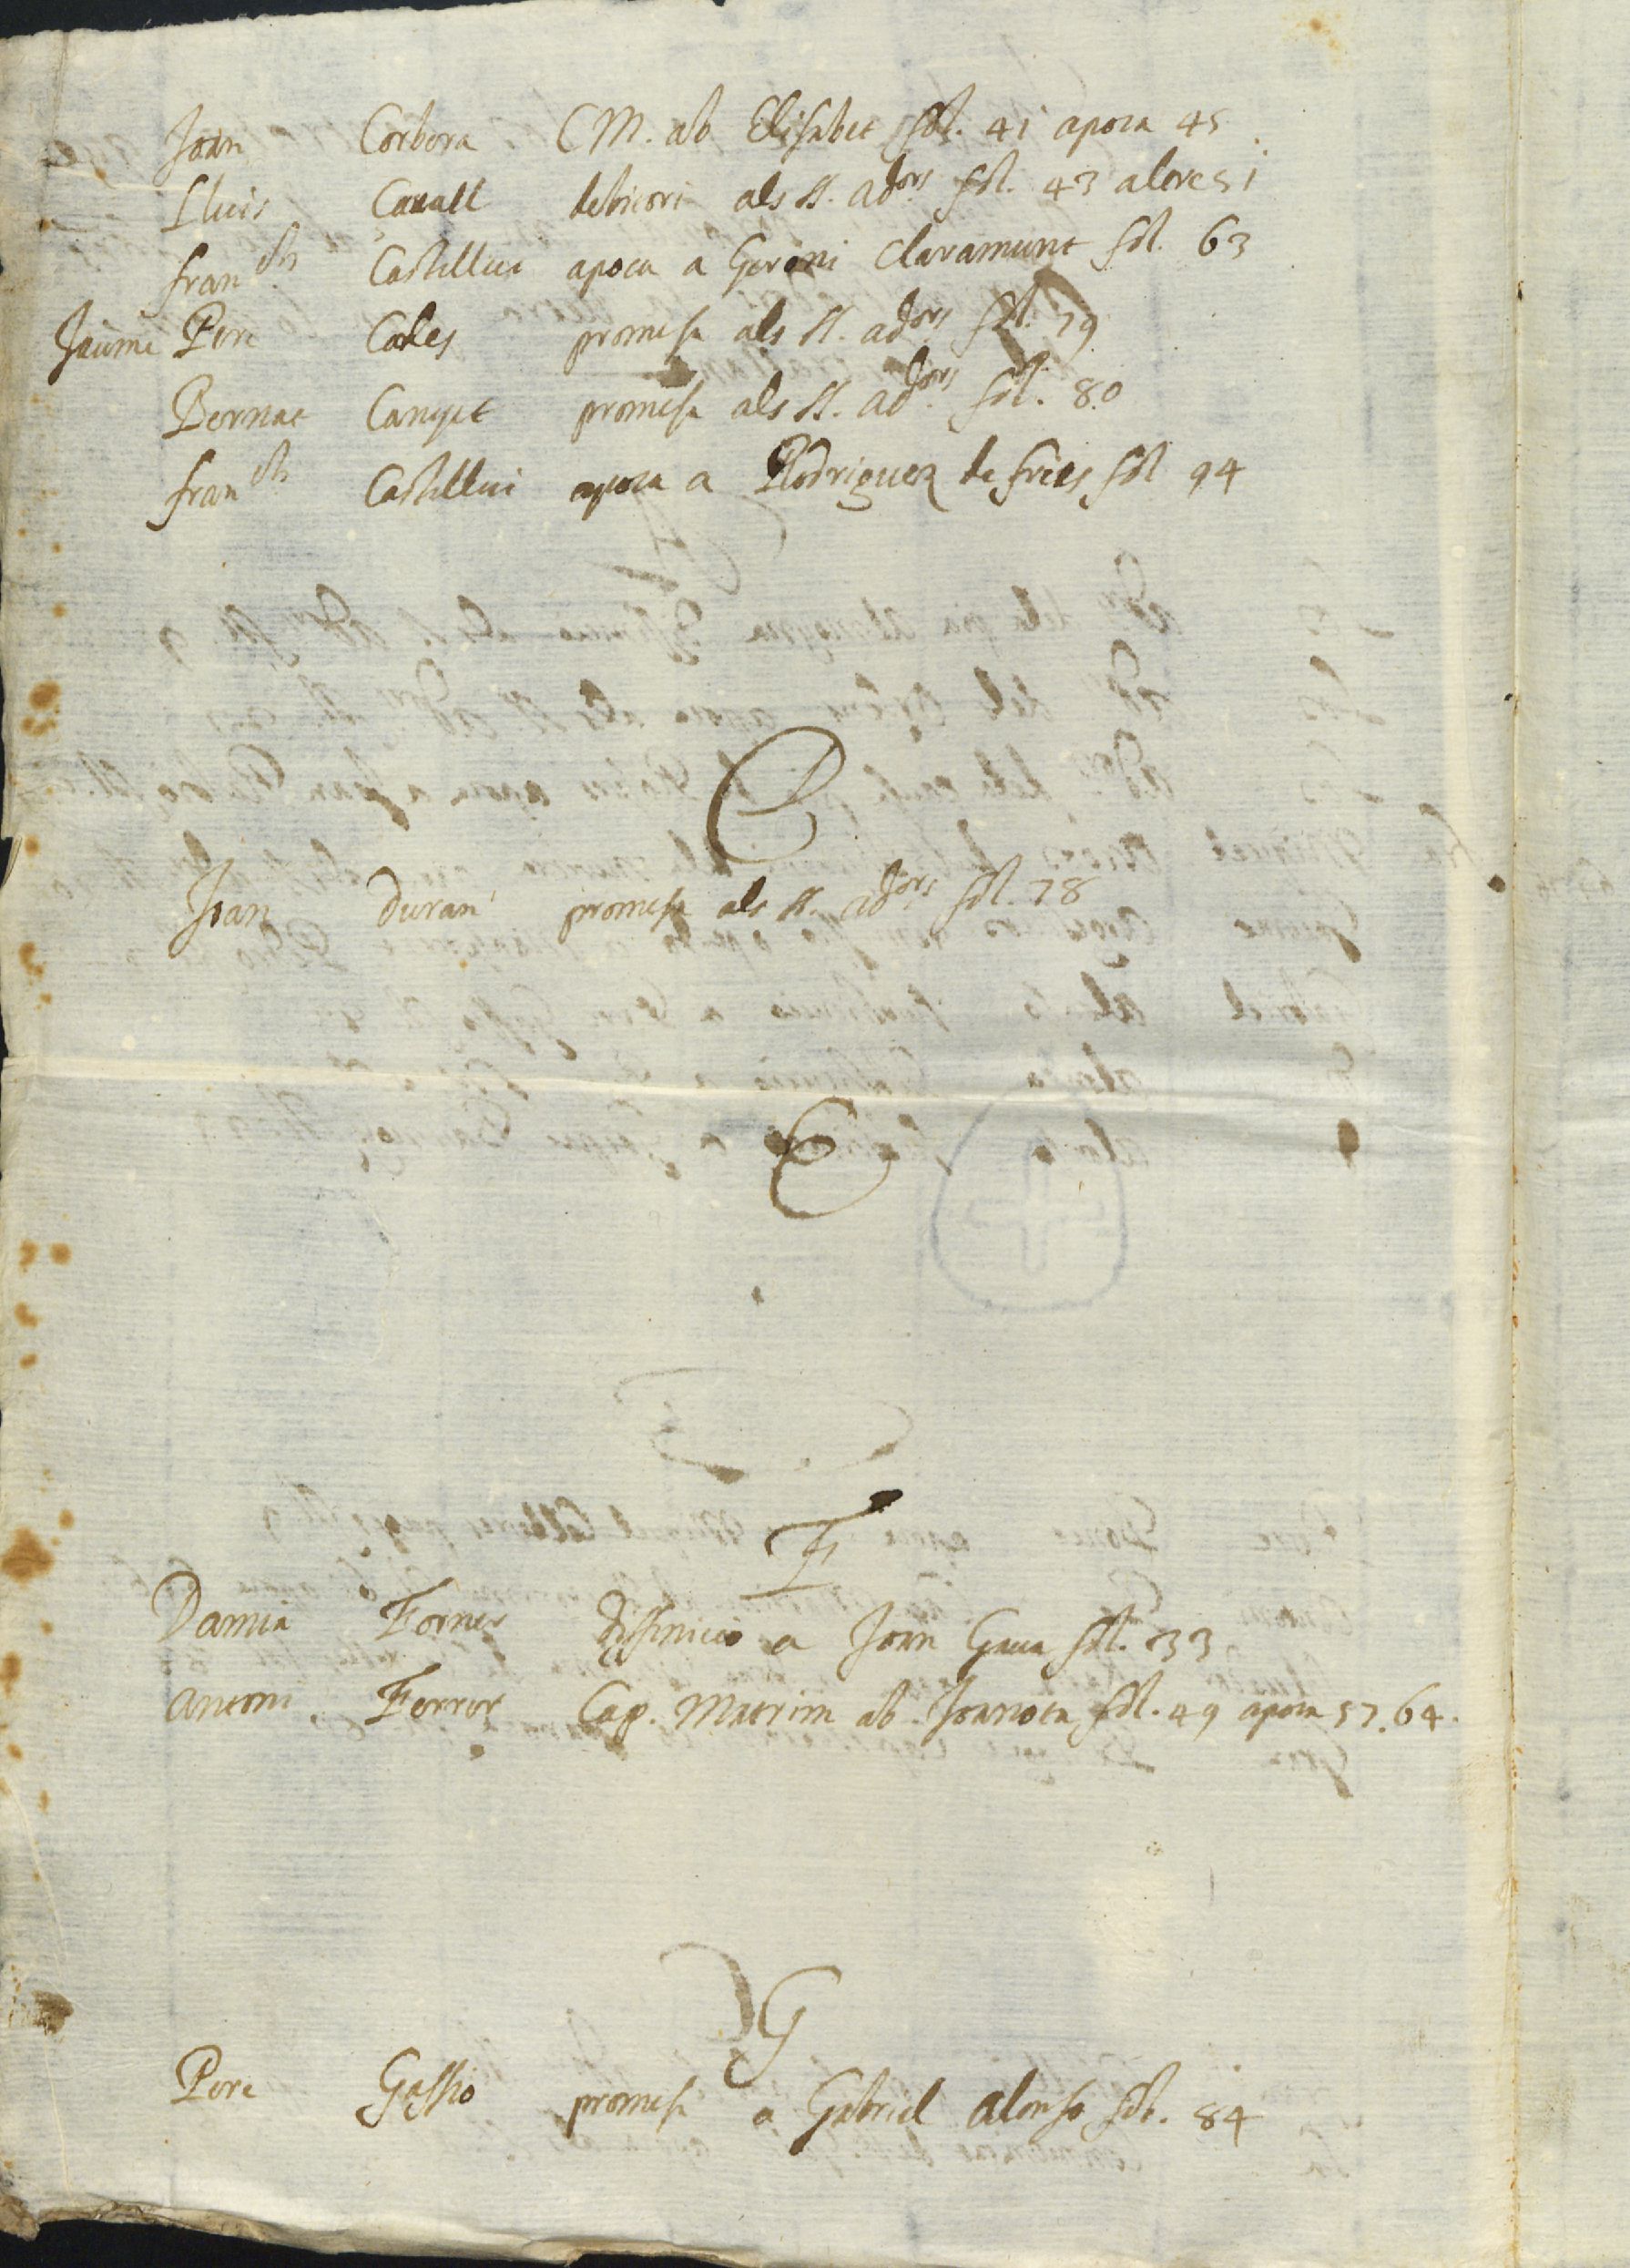 Joan Corbera CM. ab Elisabet fol. 41 apoca 45
Lluis Cauall debitori als ss. adors fol. 43 altre 51
franch Castellui apoca a Geroni Claramunt fol. 63
Jaume Pere Coles promesa als ss. adors fol. 79
Bernat Canyet promesa als ss. adors fol. 80
franch Castellui apoca a Rodriguez de fries fol 94
D
Joan Duran promesa als ss. adors fol. 78
E
F
Damia Forner diffinicio a Joan Graua fol. 33
Antoni Ferrer Cap. Matrim ab Joanota fol. 49 apoca 57.64.
G
Pere Gassio promesa a Gabriel Alonso fol. 84